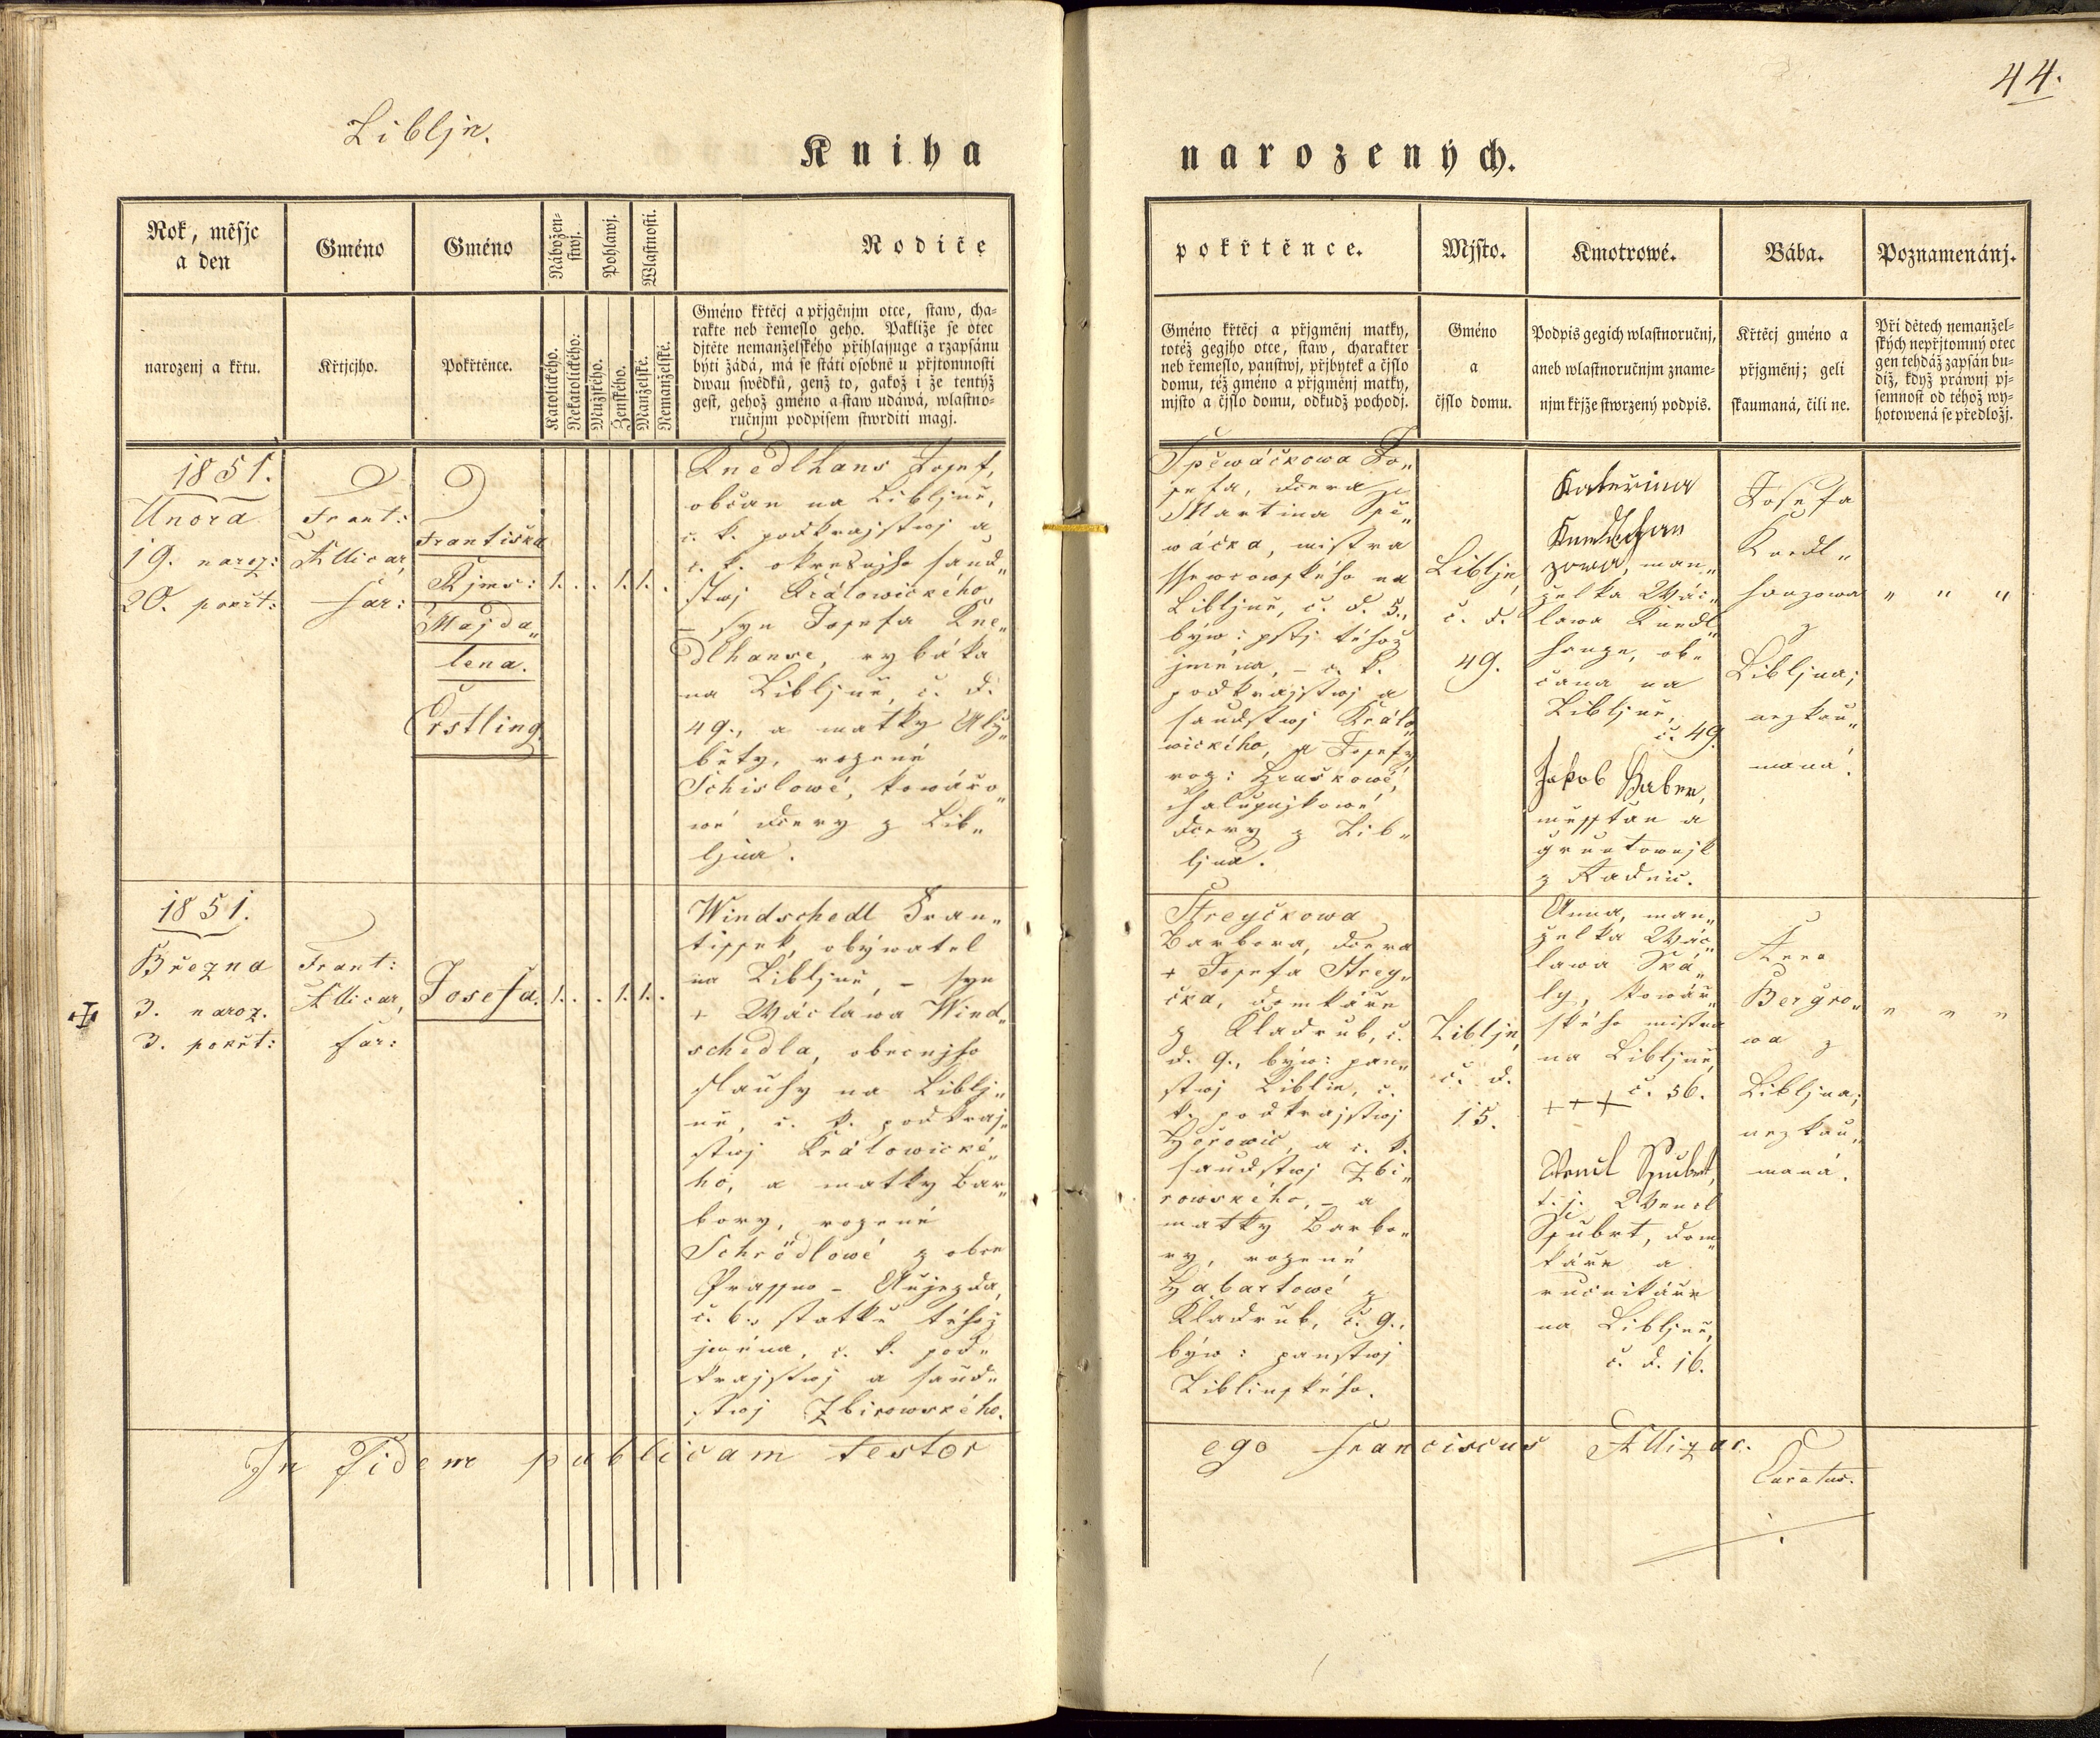 44.
Libljn.
Kniha
narozených.
Rok, měsjc
a den
Gméno
Gméno
Nábožen-
stwj.
Pohlawj.
Wlastnosti.
Rodiče
narozenj a křtu.
Křtjcjho.
Pokřtěnce.
Katolického.
Nekatolického:
Mužského.
Ženského.
Manželské.
Nemanželské.
Gméno křtěcj a přjgěnjm otce, staw, cha-
rakte neb řemeslo geho. Pakliže se otec
djtěte nemanželského přihlašuge a rzapsánu
býti žádá, má se státi osobně u přjtomnosti
dwau swědků, genž to, gakož i že tentýž
gest, gehož gméno a staw udáwá, wlastno-
ručnjm podpisem stwrditi magj.
pokřtěnce.
Mjsto.
Kmotrowé.
Bába.
Poznamenánj.
Gméno křtěcj a přjgměnj matky,
totéž gegjho otce, staw, charakter
neb řemeslo, panstwj, přjbytek a čjslo
domu, též gméno a přjgměnj matky,
mjsto a čjslo domu, odkudž pochodj.
Gméno
a
čjslo domu.
Podpis gegich wlastnoručnj,
aneb wlastnoručnjm zname-
njm křjže stwrzený podpis.
Křtěcj gméno a
přjgměnj; geli
skaumaná, čili ne.
Při dětech nemanžel-
ských nepřjtomný otec
gen tehdáž zapsán bu-
diž, když práwnj pj-
semnost od téhož wy-
hotowená se předložj.
1851.
Unora
19. naroz:
20. pokřt:
Frant:
Allicar,
far:
Františka
Řjms:
Majda„
lena.
Erstling
1. . . 1. 1. .
Knedlhans Josef,
občan na Libljně,
c. k. podkrajstwj a
c. k. okresnjho saud„
stwj Králowického,
– syn Josefa Kne„
dlhanse, rybáka
na Libljně, č. d.
49., a matky Alž„
běty, rozené
Schislowé, kowáro„
wé dcery z Lib„
ljna.
Spěwáčkowa Jo„
sefa, dcera
Martina Spě„
wáčka, mistra
ssewcowského na
Libljně, č. d. 5.,
býw: pstj téhož
jména, – c. k.
podkrajstwj a
saudstwj Králo„
wického, a Josefy
roz: Hruškowé,
chalupnjkowé
dcery z Lib„
ljna.
Libljn,
č. d.
49.
Kateřina
zowa, man„
želka Wác„
lawa Knedl„
hanze, ob„
čana na
Libljně,
č. 49.
Jakob Haber,
měsstan a
gruntownjk
z Radnic.
Josefa
Knedl„
hanzowa
z
Libljna;
nezkau„
maná.
„ „ „
1851.
Března
3. naroz.
3. pokřt:
Frant:
Allicar,
far:
Josefa.
1. . . 1. 1. .
Windschedl Fran„
tissek, obýwatel
na Libljně, – syn
+ Wáclawa Wind„
schedla, obecnjho
slauhy na Liblj„
ně, c. k. podkraj„
stwj Králowické„
ho, a matky Bar„
bory, rozené
Schrödlowé z obce
Prassno-Aujezda,
č. 6., statku téhož
jména, c. k. pod„
krajstwj a saud„
stwj Zbirowského.
Streyčkowa
Barbora, dcera
+ Josefa Strey„
čka, domkáře
z Kladrub, č.
d. 9., býw: pan„
stwj Liblin, c.
k. podkrajstwj
Hořowic, a c. k.
saudstwj Zbi„
rowského, – a
matky Barbo„
ry, rozené
Habartowé z
Kladrub, č. 9.,
býw: panstwj
Liblinského.
Libljn,
č. d.
15.
Anna, man„
želka Wác„
lawa Ská„
ly, kowář„
ského mistra
na Libljně,
č. 56.
+++
t. j. Wencl
Spubrt, dom„
káře a
ručnikáře
na Libljně,
č. d. 16.
Anna
Bergro„
wa z
Libljna;
nezkau„
maná.
„ „ „
In Fidem publicam testor
ego Franciscus Allizar.
Curatus.